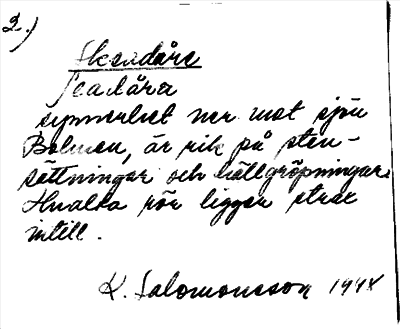 2.)
Skeadåre
Seadåra
synnerhet ner mot sjön
Bolmen, är rik på sten-
sättningar och hällgröpningar.
Hualta rör ligger strax
intill.
K. Salomonsson 1944